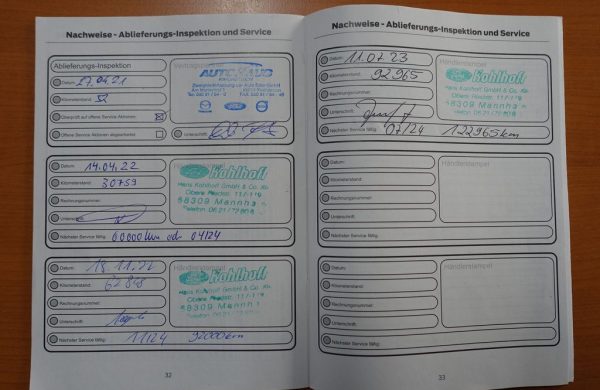 Nachweise - Ablieferungs-Inspektion und Service
Ablieferungs-Inspektion
Datum: 27.04.21
Kilometerstand:
Überprüft auf offene Service-Aktionen:
Offene Service-Aktionen abgearbeitet:
Unterschrift:
AUTOHAUS
Datum: 14.04.22
Kilometerstand: 30759
Rechnungsnummer:
Unterschrift:
Nächster Service fällig: 60000km od. 04/24
Kohlhoff
Hans Kohlhoff GmbH & Co. KG
Obere Riedstr. 117-119
68309 Mannh
Telefon 0621/
Datum: 18.11.22
Kilometerstand:
Rechnungsnummer:
Unterschrift:
Nächster Service fällig: 11/24 92000km
Händlerstempel
Kohlhoff
Hans Kohlhoff GmbH & Co. KG
Obere Riedstr. 117-119
68309 Mannh
Telefon 0621/
32
Nachweise - Ablieferungs-Inspektion und Service
Datum: 11.07.23
Kilometerstand: 92965
Rechnungsnummer:
Unterschrift:
Nächster Service fällig: 07/24 122965km
Händlerstempel
Kohlhoff
68309 Mannh
Datum:
Kilometerstand:
Rechnungsnummer:
Unterschrift:
Nächster Service fällig:
Händlerstempel
Datum:
Kilometerstand:
Rechnungsnummer:
Unterschrift:
Nächster Service fällig:
Händlerstempel
33